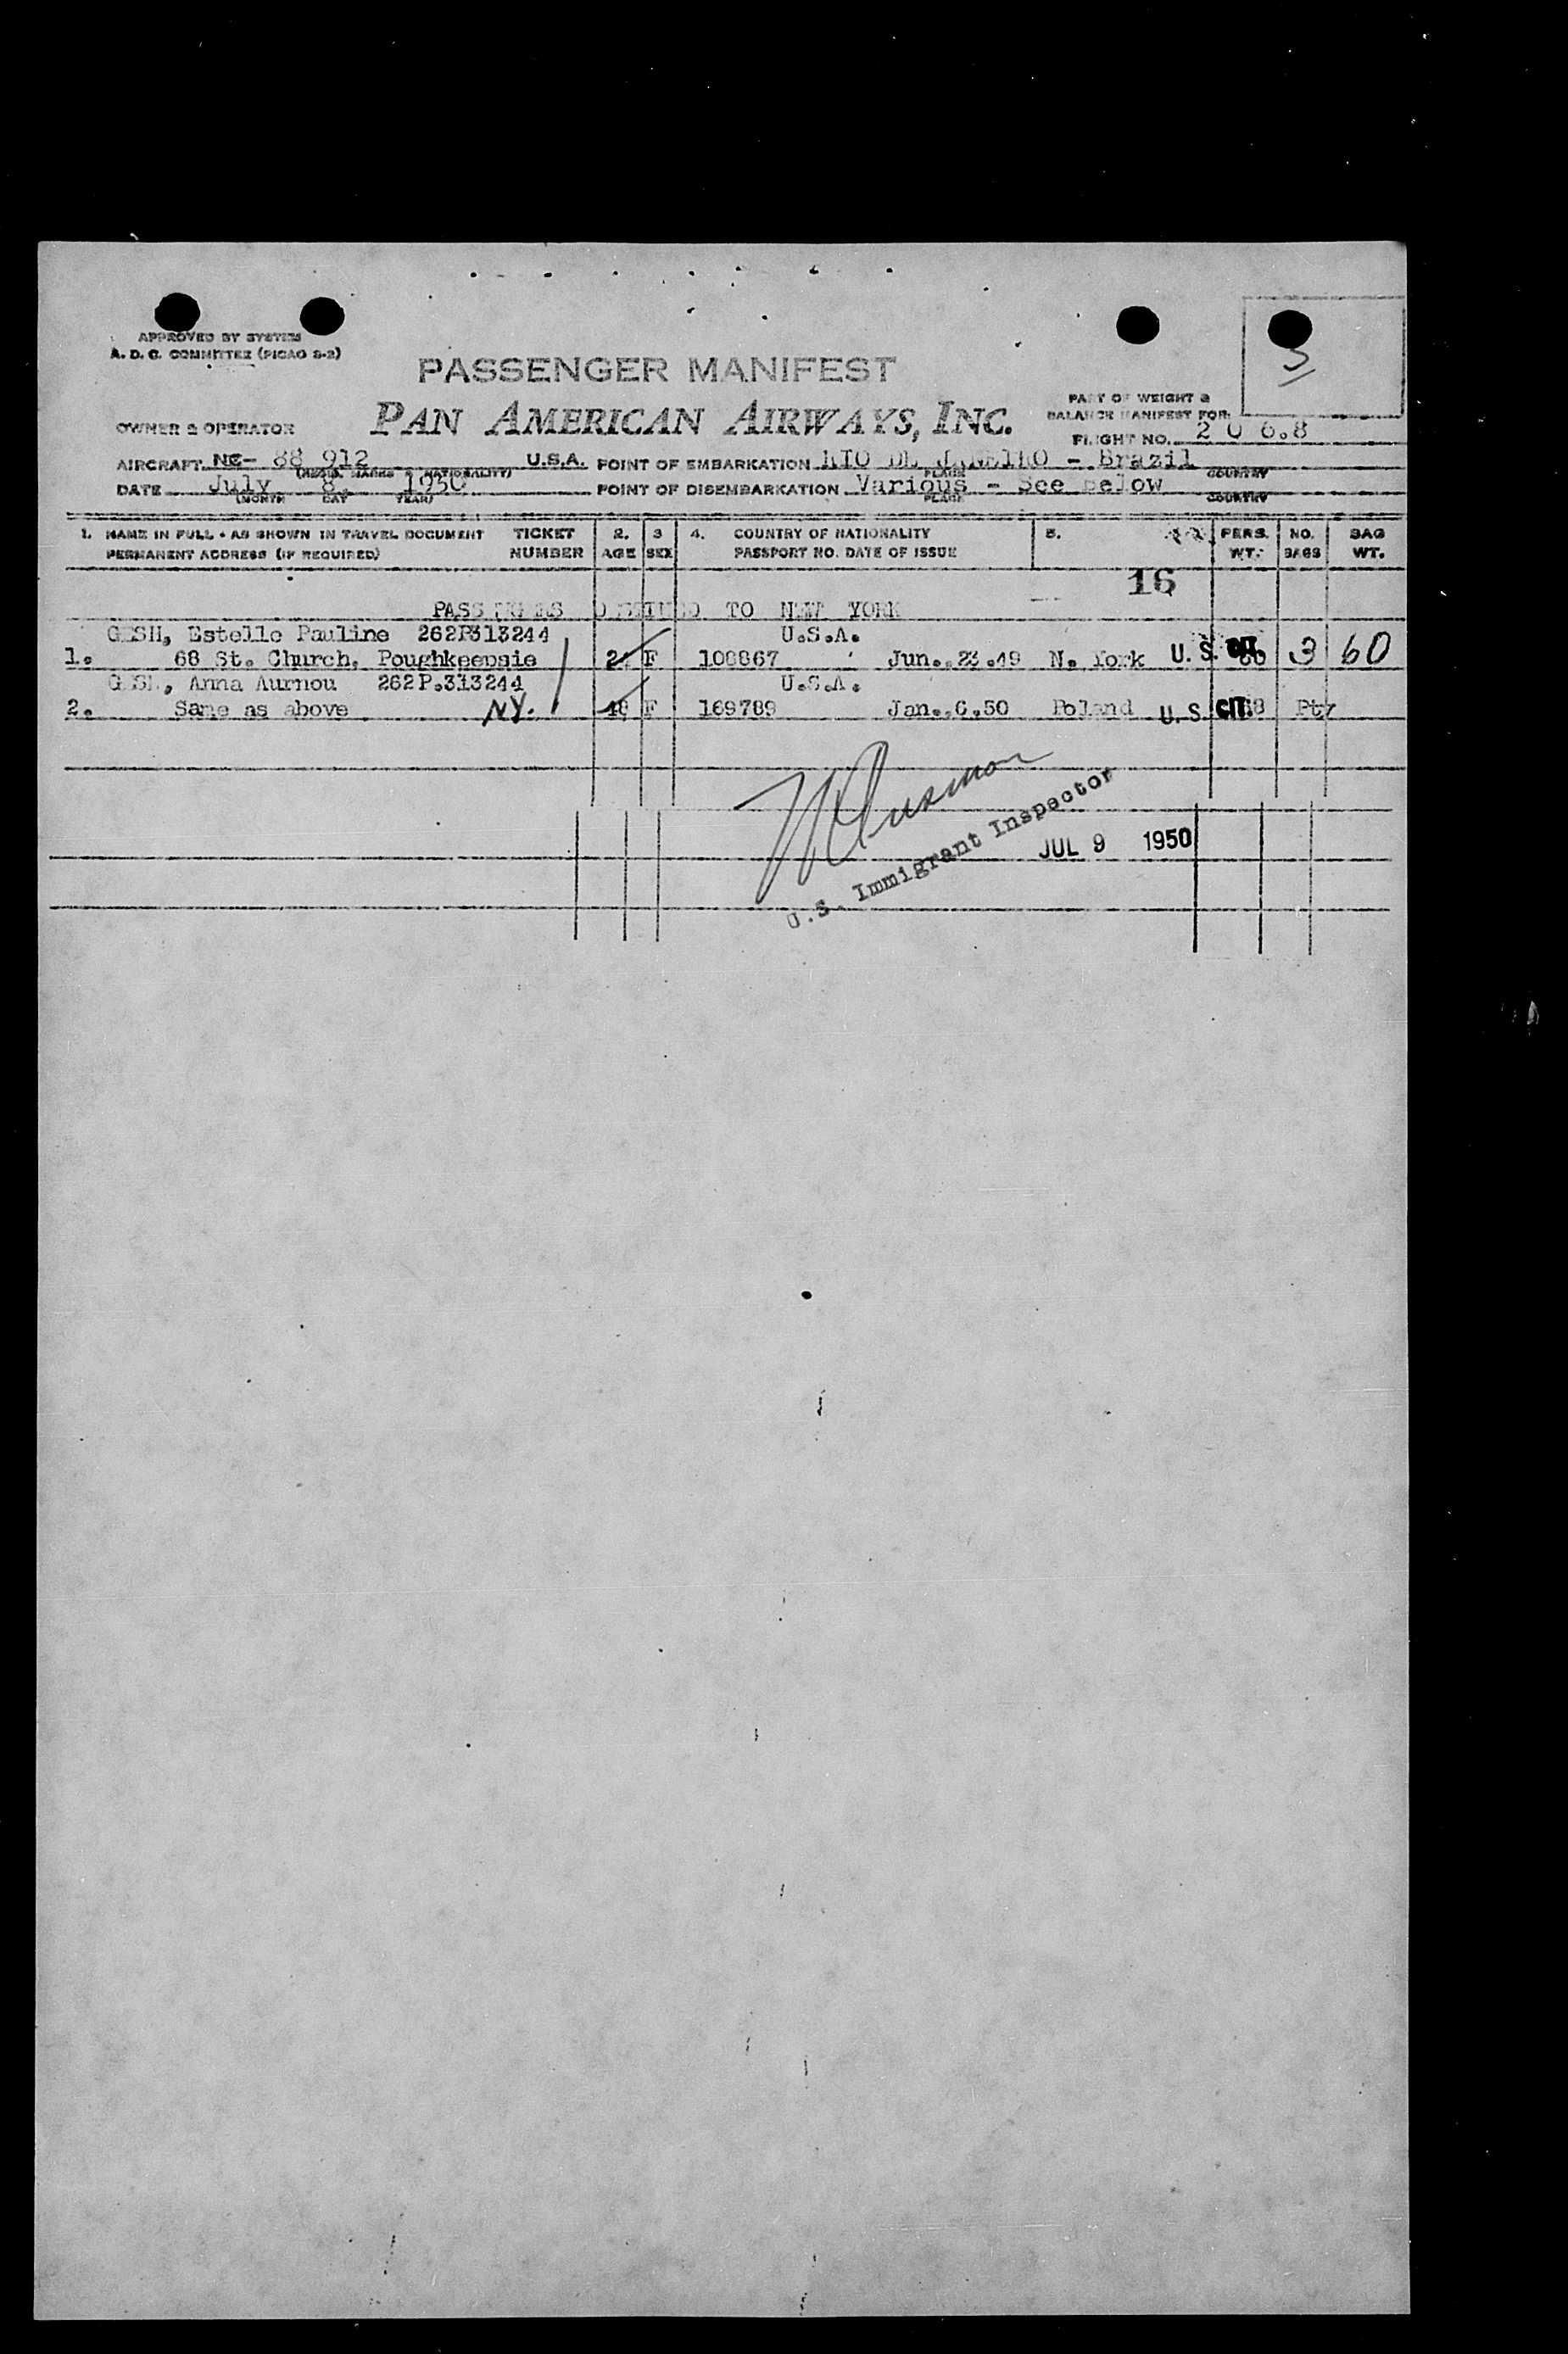 APPROVED BY SYSTEM
A. D. C. COMMITTEE (PICAO S-2)
3
PASSENGER MANIFEST
PAN AMERICAN AIRWAYS, INC.
OWNER & OPERATOR
PART OF WEIGHT &
BALANCE MANIFEST FOR:
FLIGHT NO. 206.8
AIRCRAFT NC- 88 912 U.S.A. POINT OF EMBARKATION RIO DE JANEIRO - Brazil
(REGIS. MARKS & NATIONALITY) PLACE COUNTRY
DATE July 8, 1950 POINT OF DISEMBARKATION Various - See below
(MONTH DAY YEAR) PLACE COUNTRY
1. NAME IN FULL • AS SHOWN IN TRAVEL DOCUMENT TICKET 2. 3 4. COUNTRY OF NATIONALITY 5. PERS. NO. BAG
PERMANENT ADDRESS (IF REQUIRED) NUMBER AGE SEX PASSPORT NO. DATE OF ISSUE WT. BAGS WT.
16
PASSENGERS DESTINED TO NEW YORK
Estelle Pauline 262P313244 U.S.A.
1. 68 St. Church, Poughkeepsie F 108867 Jun.,23.49 N. York U. S. CIT. 3 60
Anna Aurnou 262P.313244 U.S.A.
2. Same as above NY. F 169789 Jan.,6.50 Poland U. S. CIT. Pty
U.S. Immigrant Inspector
JUL 9 1950